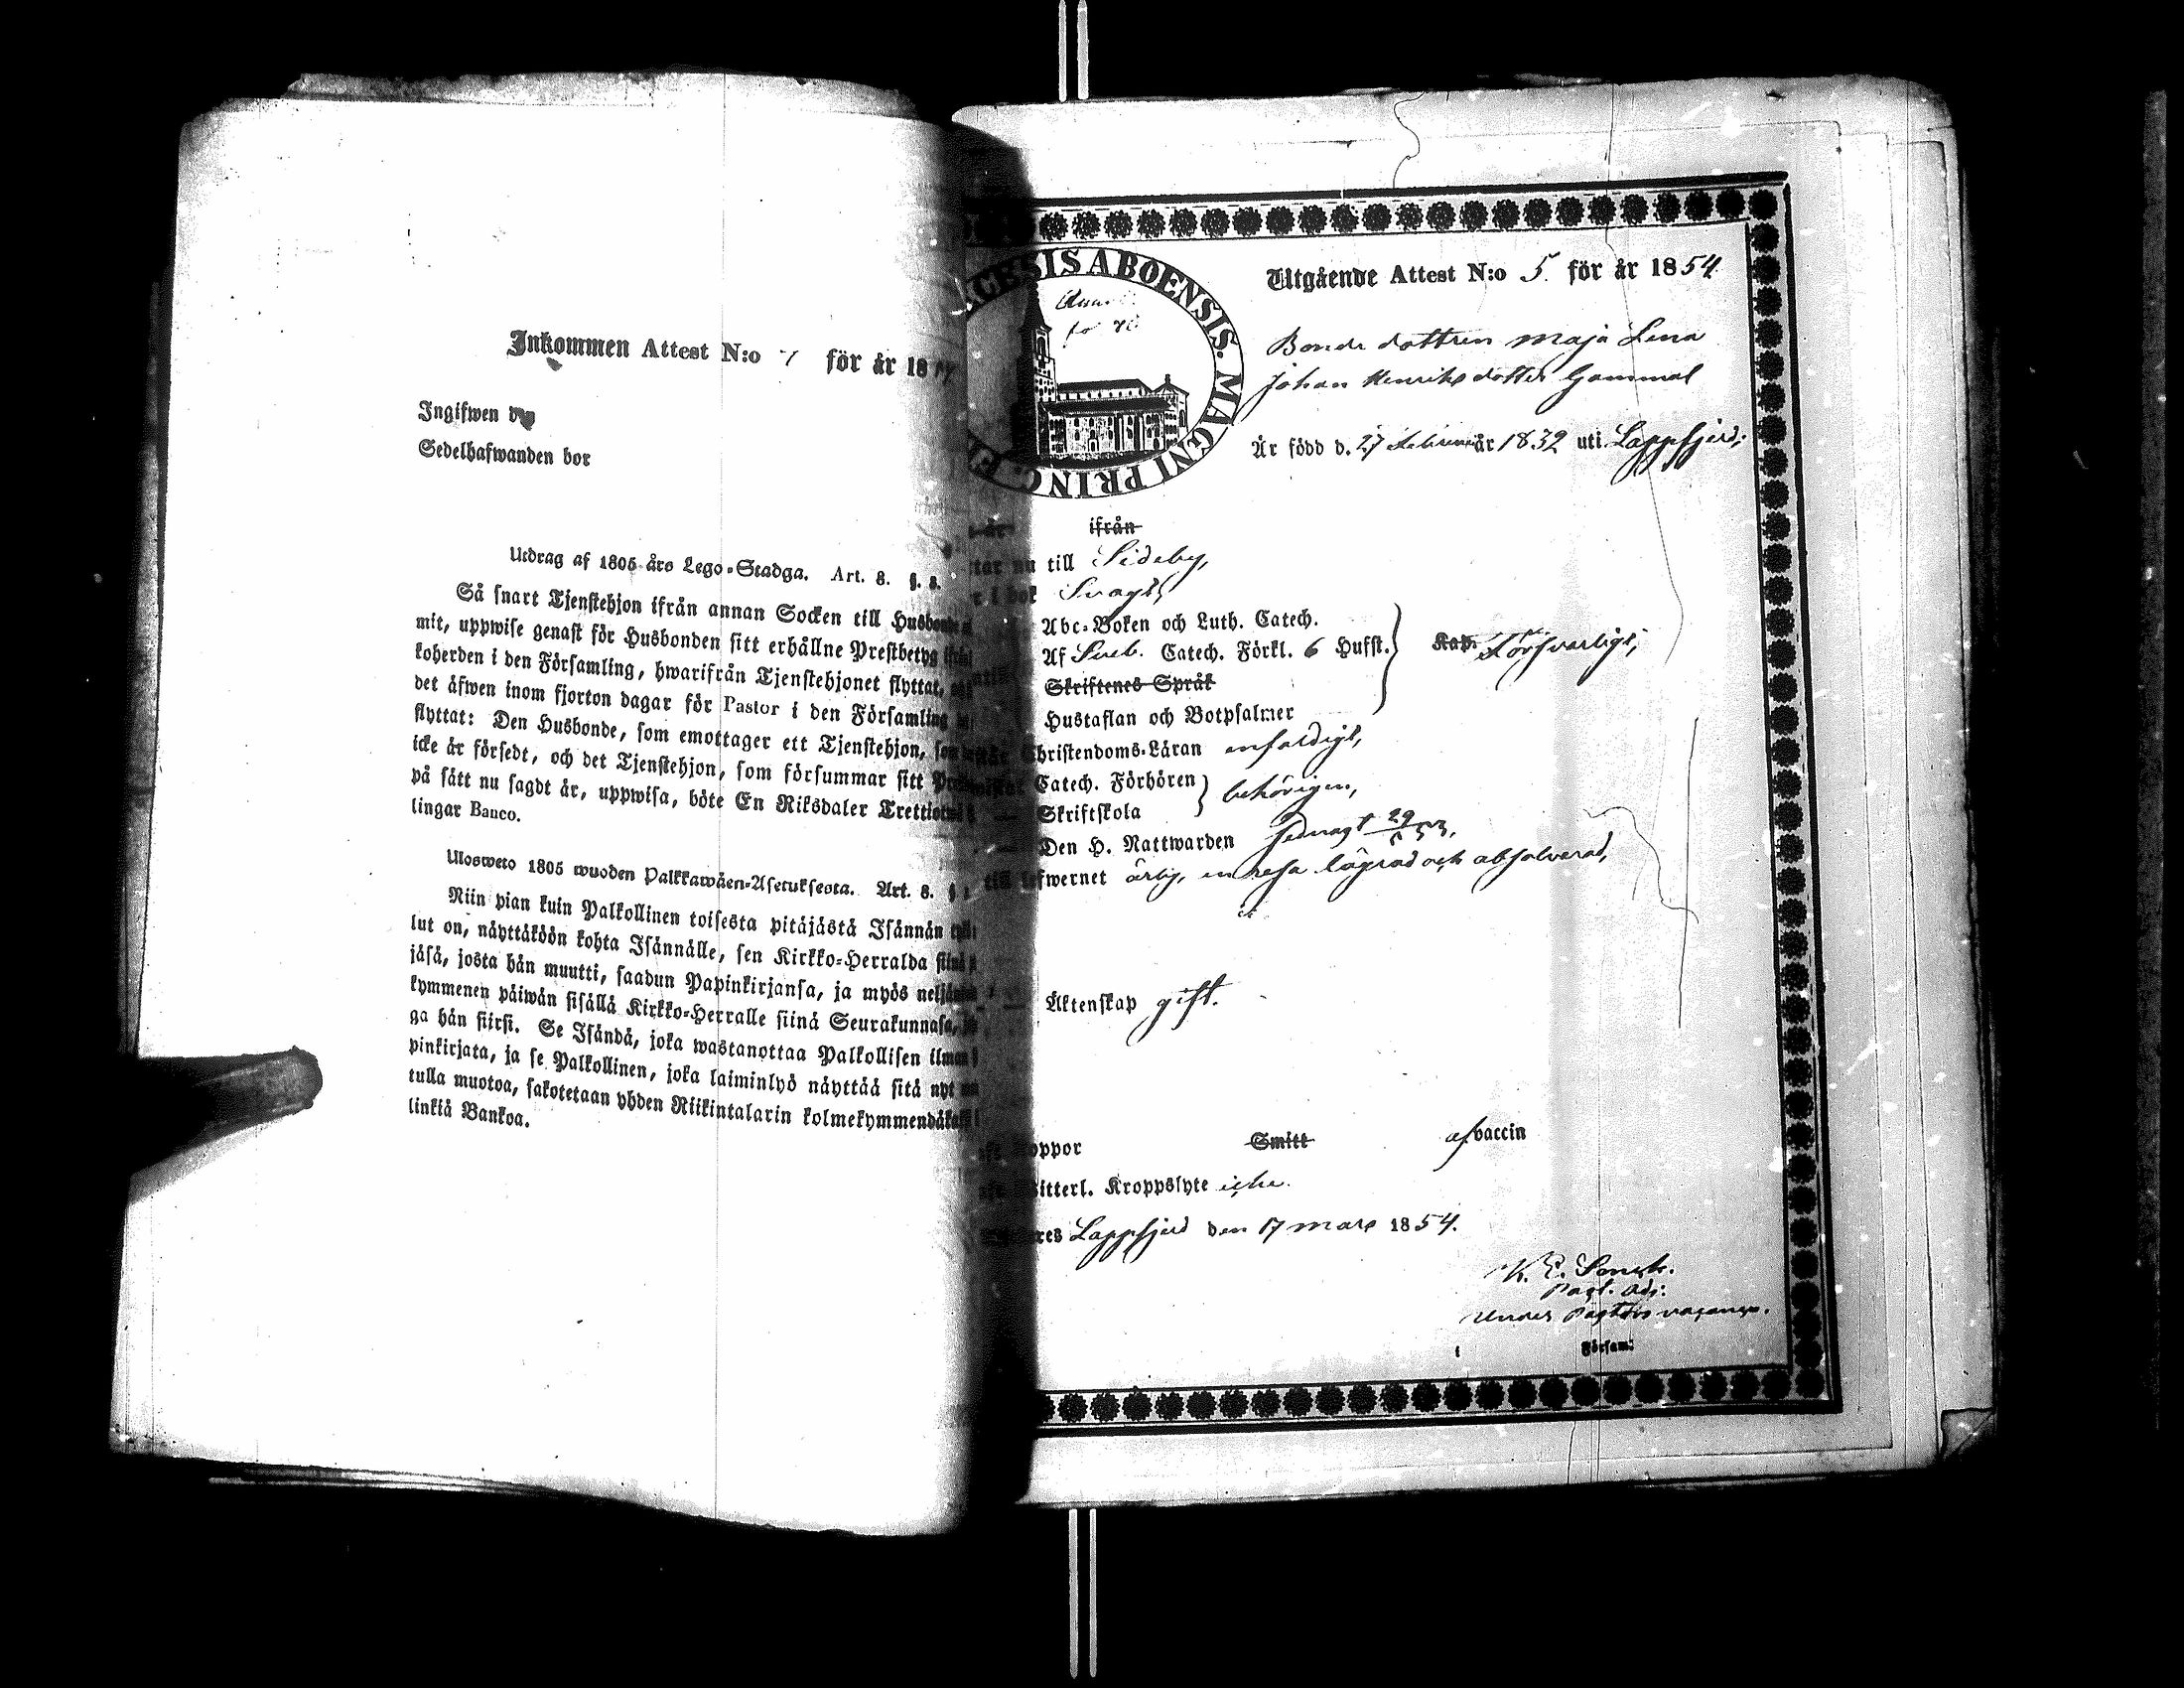 Inkommen Attest N:o 7 för år 18
Ingifwen d
Sedelhafwanden bor
Utdrag af 1805 års Lego-Stadga. Art. 8. §. 8.
Så snart Tjenstehjon ifrån annan Socken till Husbonde
mit, uppwise genast för Husbonden sitt erhållne Prestbetyg
koherden i den Församling, hwarifrån Tjenstehjonet flyttat,
det äfwen inom fjorton dagar för Pastor i den Församling
flyttat: Den Husbonde, som emottager ett Tjenstehjon, som
icke är försedt, och det Tjenstehjon, som försummar sitt
på sätt nu sagdt är, uppwisa, böte En Riksdaler
lingar Banco.
Ulosweto 1805 wuoden Palkkawäen-Asetuksesta. Art. 8. §
Niin pian kuin Palkollinen toisesta pitäjästä Isännän
lut on, näyttäköön kohta Isännälle, sen Kirkko-Herralda
jäsä, josta hän muutti, saadun Papinkirjansa, ja myös
kymmenen päiwän sisällä Kirkko-Herralle siinä Seurakunnasa,
ga hän siirsi. Se Isändä, joka wastanottaa Palkollisen ilman
pinkirjata, ja se Palkollinen, joka laiminlyö näyttää sitä nyt
tulla muotoa, sakotetaan yhden Riikintalarin
linkiä Bankoa.
ABOENSIS. MAGNI PRINC.
Utgående Attest N:o 5. för år 1854
Bonde dottren Maja Lena
Johan Henriks dotter Gammal
Är född d. 27 år 1832 uti Lappfjerd;
ifrån
till Sideby,
Svagt,
Abc-Boken och Luth. Catech.
Af Sveb. Catech. Förkl. 6 Hufst.
Kap. Försvarligt,
Skriftenes Språk
Hustaflan och Botpsalmer
Christendoms-Läran enfaldigt,
Catech. Förhören
behörigen,
Skriftskola
Den H. Nattwarden sednast
lefwernet ärlig, en resa lägrad och absolverad,
Äktenskap gift.
koppor Smitt af vaccin
witterl. Kroppslyte icke.
Lappfjerd den 17 Mars 1854.
K. E.
Past. Adj:
under Pastors vacance.
i Försam: